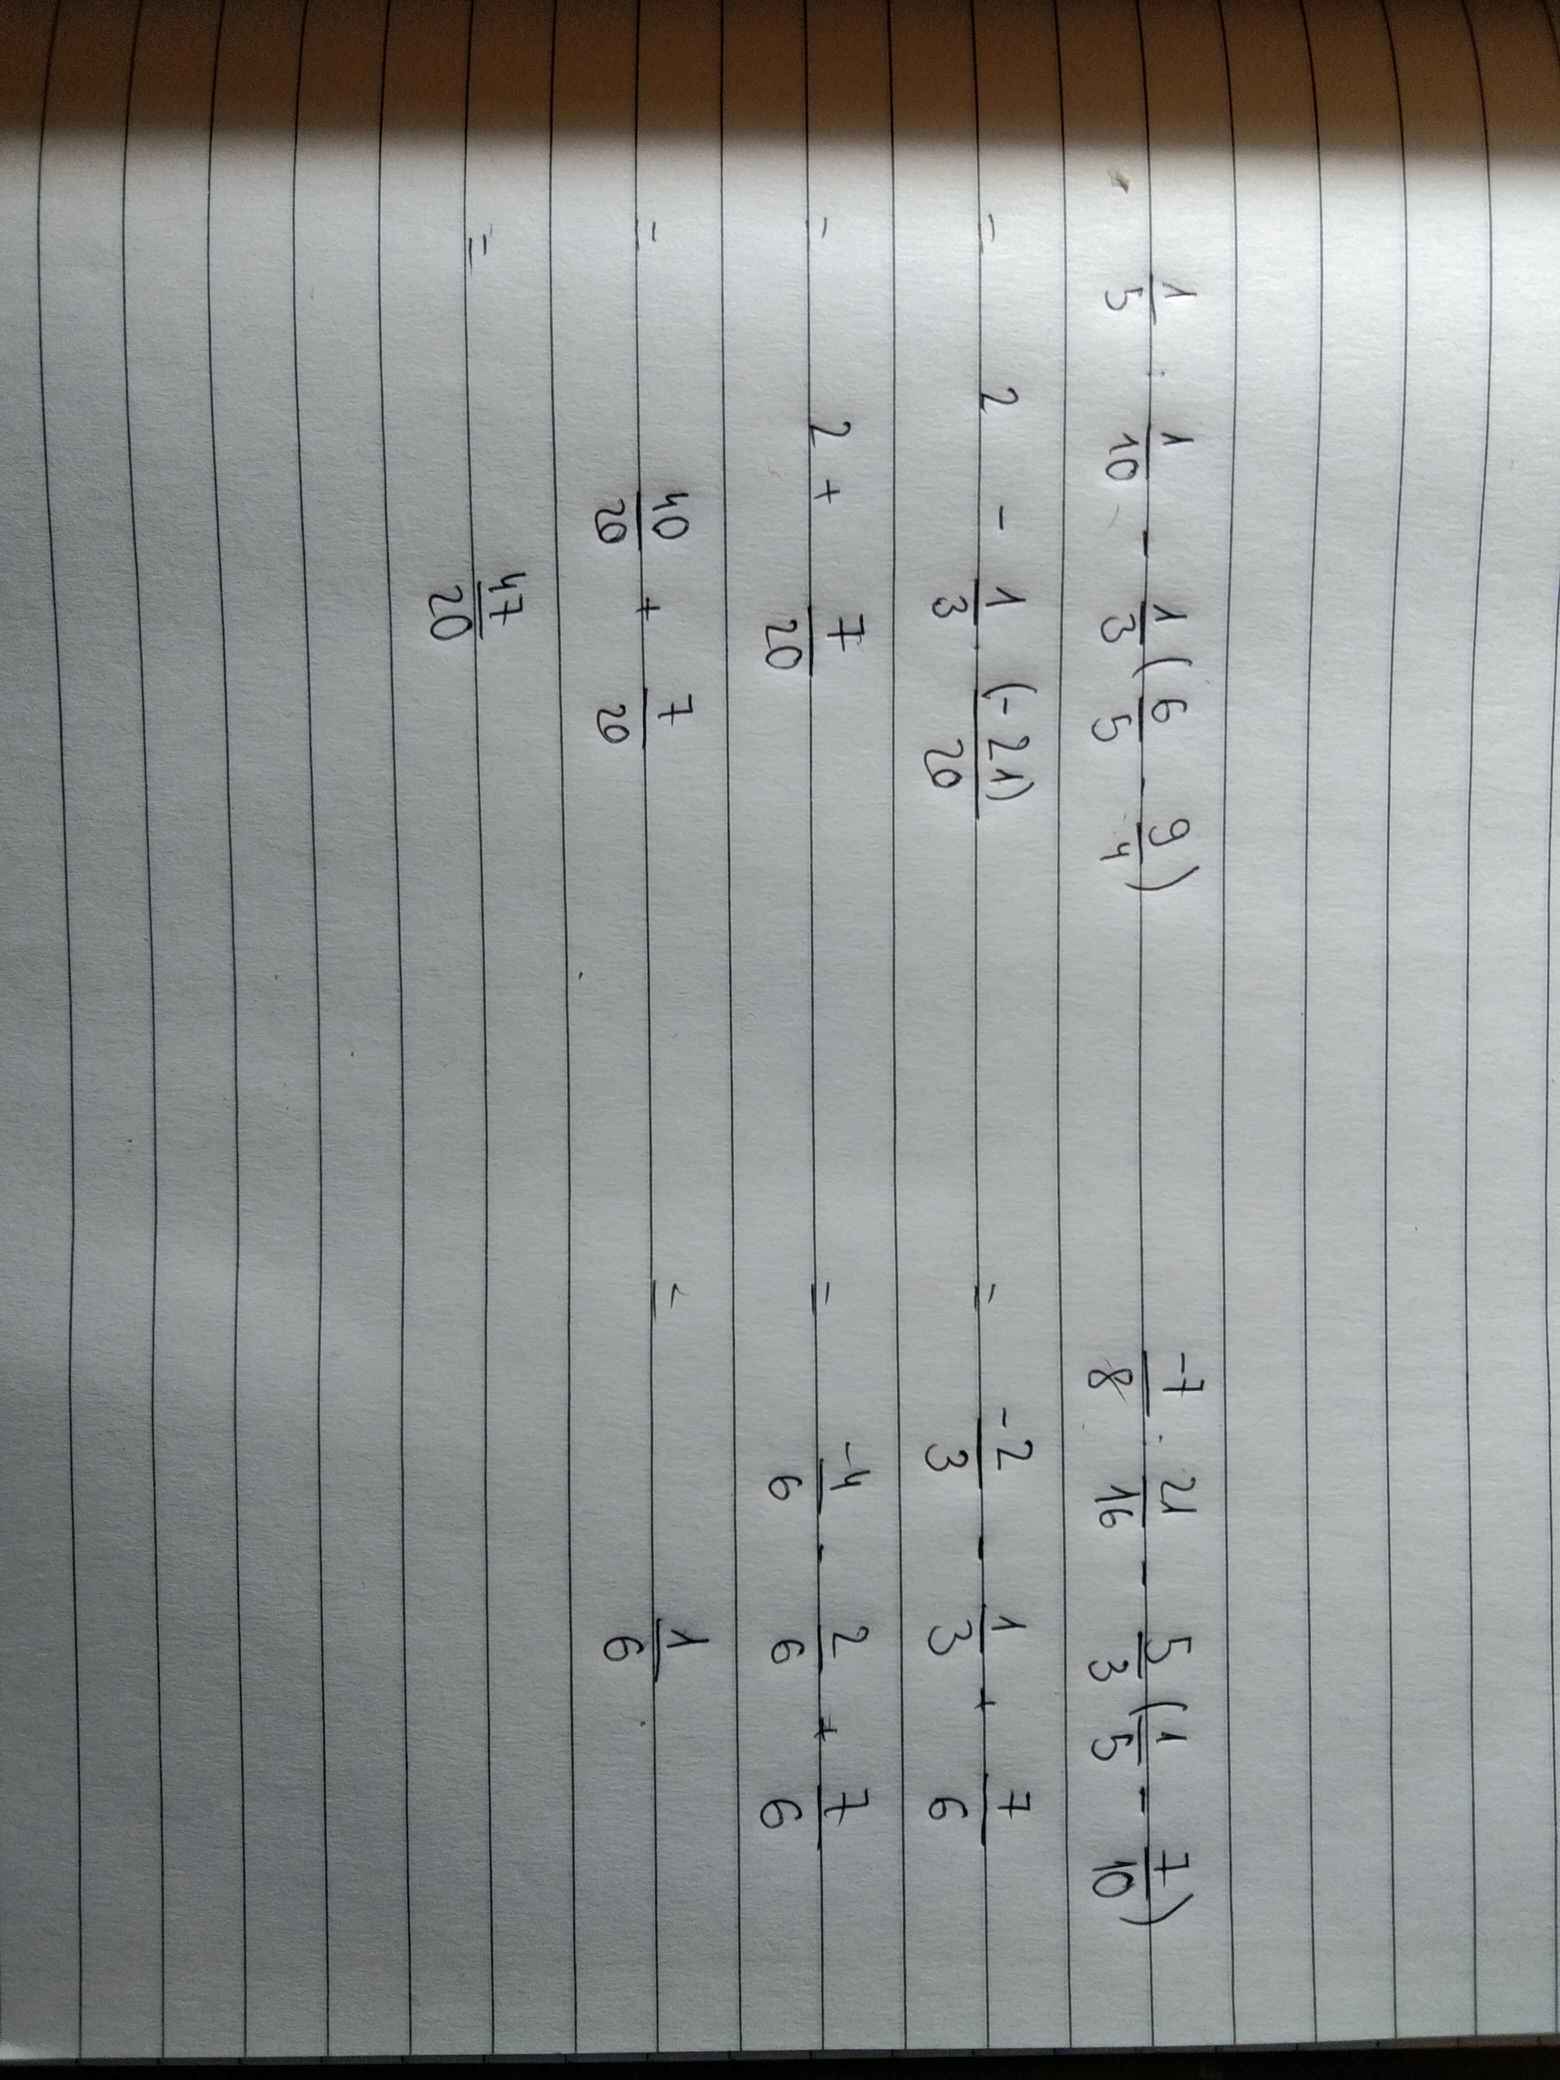 1/5 : 1/10 - 1/3 ( 6/5 - 9/4 )
= 2 - 1/3 · (-21)/20
= 2 + 7/20
= 40/20 + 7/20
= 47/20
-7/8 : 21/16 - 5/3 ( 1/5 - 7/10 )
= -2/3 - 1/3 + 7/6
= -4/6 - 2/6 + 7/6
= 1/6